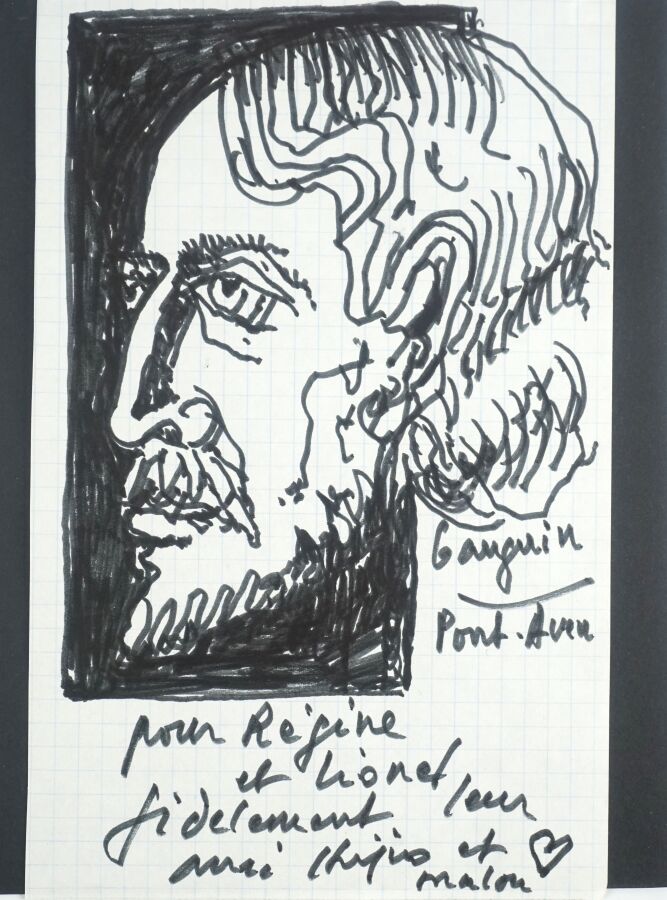 Gauguin
Pont-Aven
pour Régine
et Lionel
fidelement leur
ami et
malou